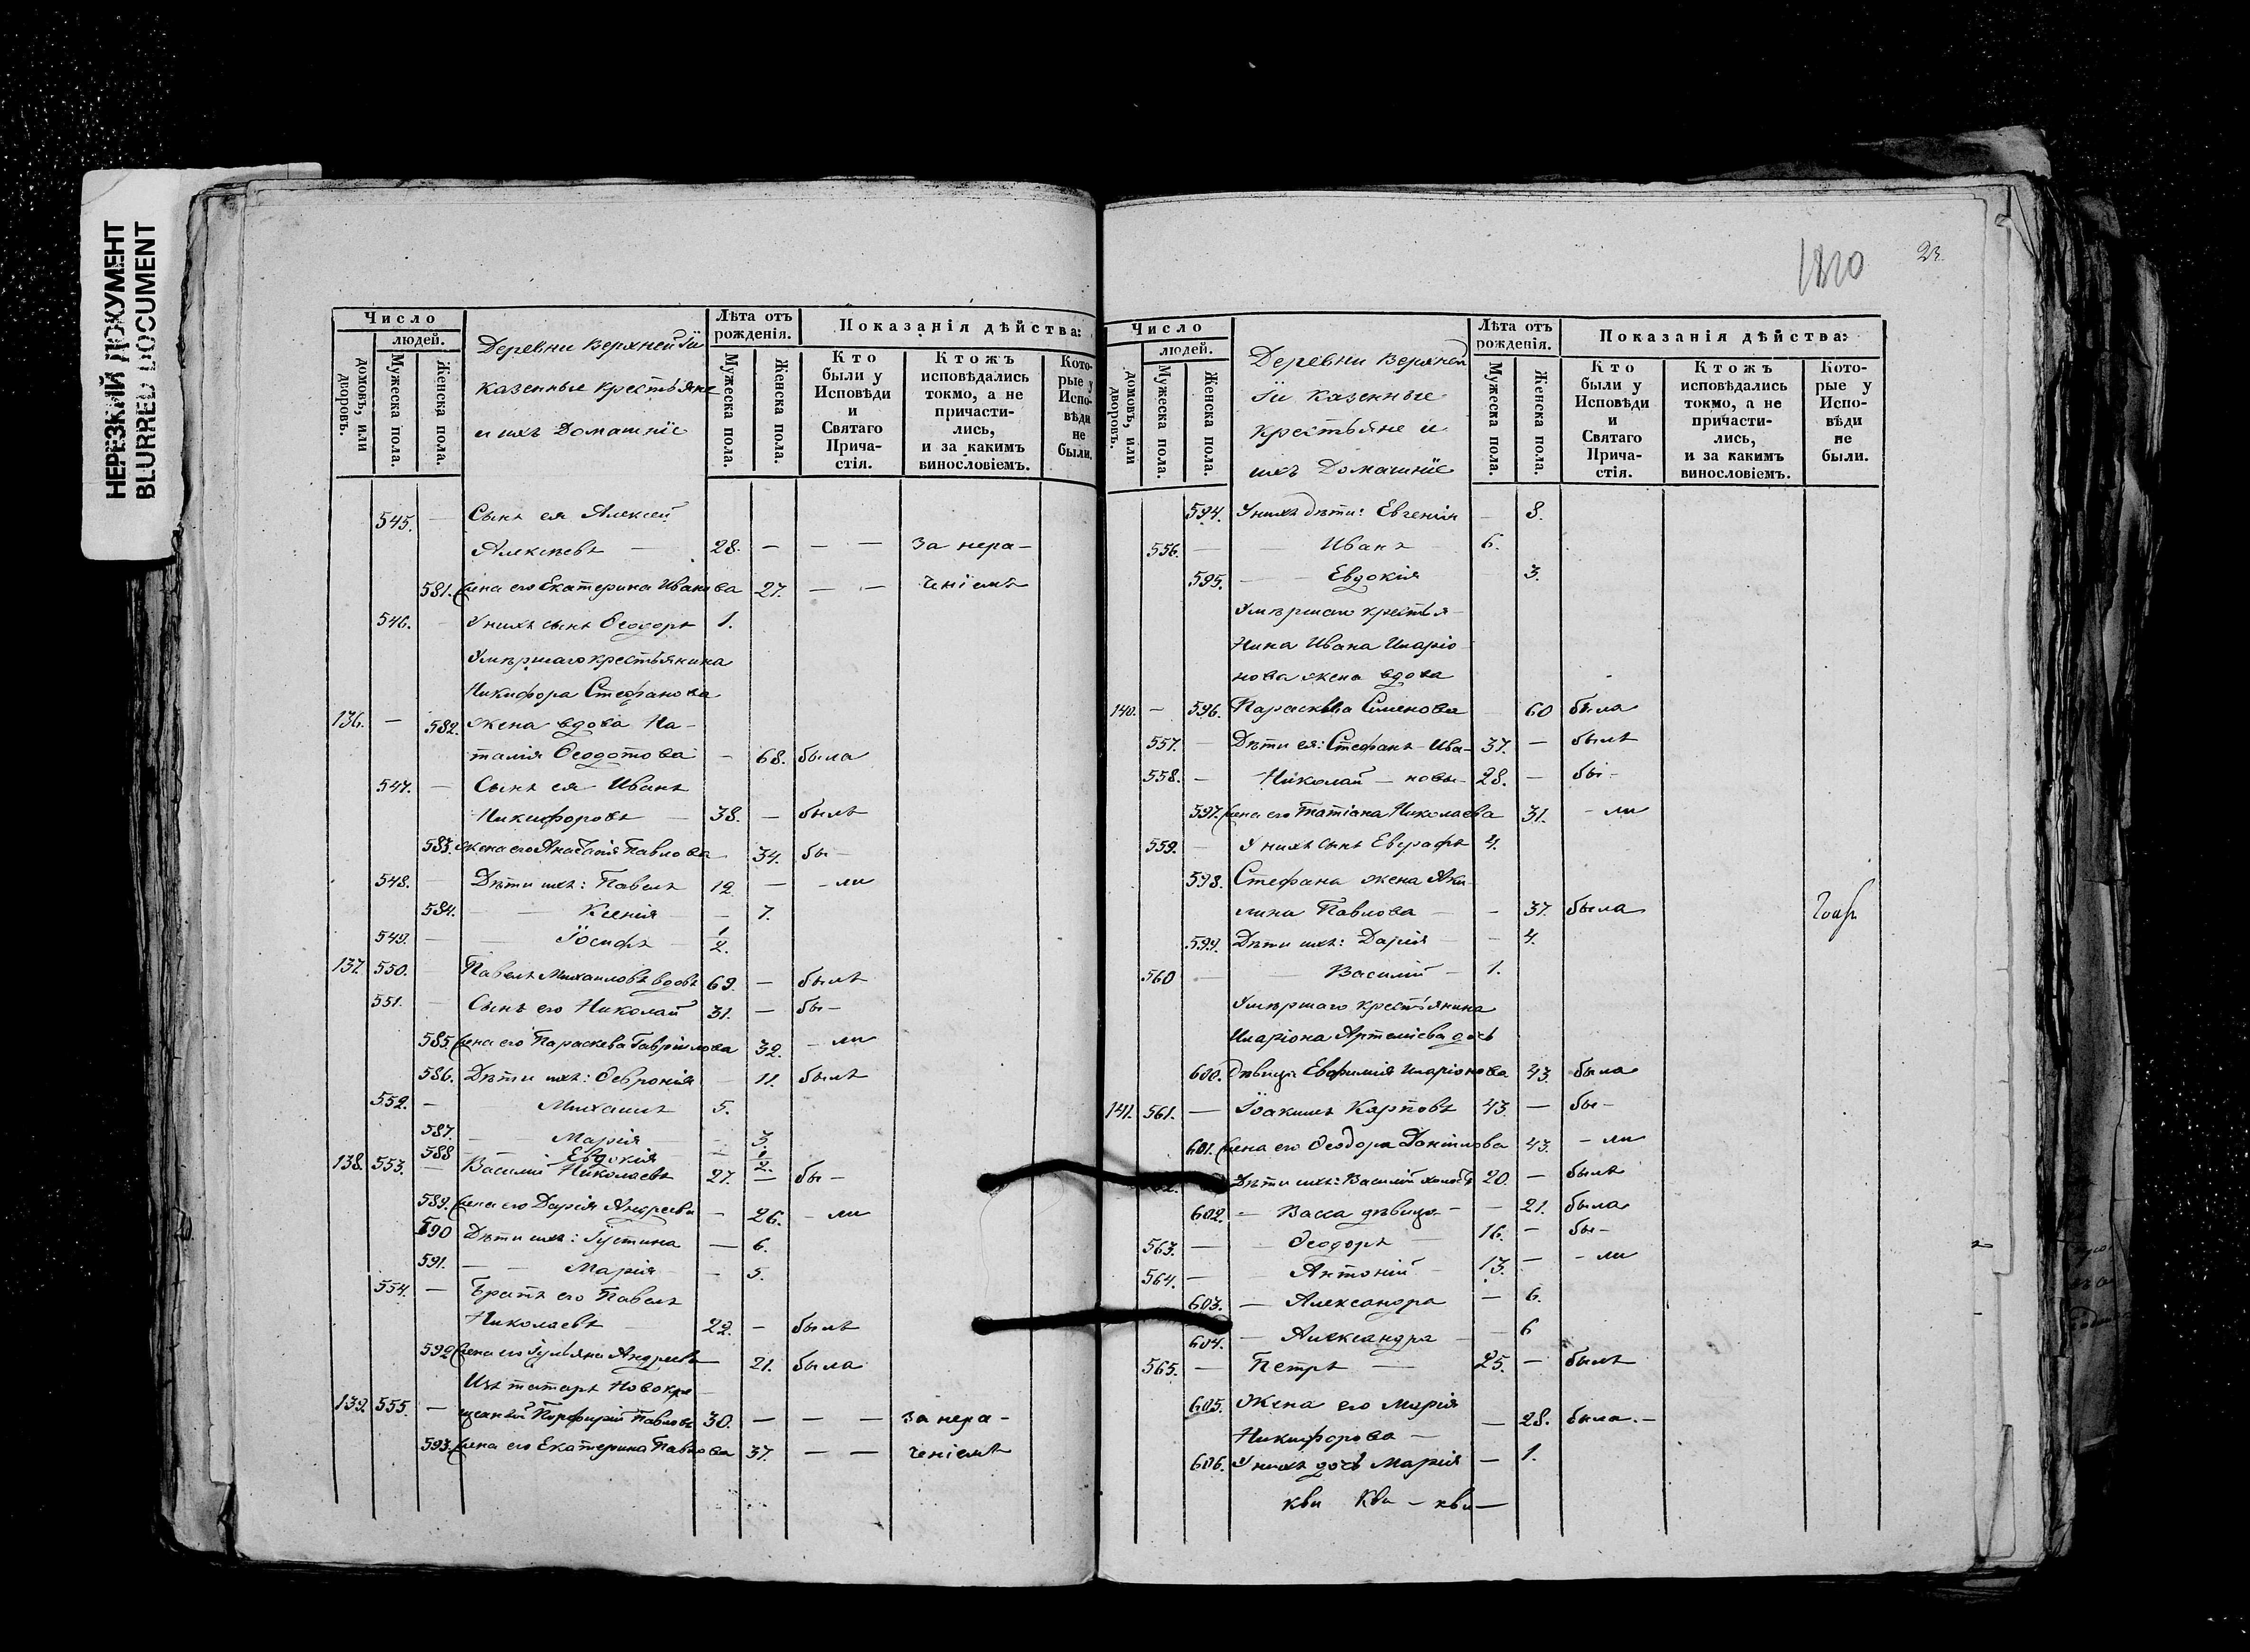 НЕРЕЗКИЙ ДОКУМЕНТ
BLURRED DOCUMENT
Число
людей.
домовъ, или дворовъ.
Мужеска пола.
Женска пола.
Деревни Верхней Iи
казенные крестьяне
и ихъ Домашнiе
Лѣта отъ рожденiя.
Мужеска пола.
Женска пола.
Показанiя дѣйства:
Кто были у Исповѣди и Святаго Прича-стiя.
Ктожъ исповѣдались токмо, а не причасти-лись, и за какимъ винословiемъ.
Кото-рые у Испо-вѣди не были.
545. — Сынъ ея Алексѣй
Алексѣевъ — 28. — — — За нера-
581. Жена его Екатерина Иванова 27. — — ченiемъ
546. У нихъ сынъ Ѳеодоръ 1.
Умѣршаго крестьянина
Никифора Стефанова
136. — 582. жена вдова На-
талiя Ѳеодотова — 68. была
547. — Сынъ ея Иванъ
Никифоровъ — 38. — былъ
583. жена его Анастасiя Павлова 34. бы-
548. — Дѣти ихъ: Павелъ 12 — - ли
584. — — Ксенiя — — 7.
549. — — Iосифъ — 1/2.
137. 550. — Павелъ Михаиловъ вдовъ 69. — былъ
551. — Сынъ его Николай 31. — бы-
585. Жена его Параскева Гаврiилова 32. - ли
586. Дѣти ихъ: Ѳевронiя — 11. былъ
552. — — Михаилъ 5.
587. — — Марiя — 3.
588 — — Евдокiя — 1/2.
138. 553. — Василiй Николаевъ 27. — бы-
589. Жена его Дарiя Андреева — 26. - ли
590 Дѣти ихъ: Iустина — 6.
591. — — Марiя — 5.
554. — Братъ его Павелъ
Николаевъ 22. — былъ
592 Жена его Iулiяна Андреева 21. была
Изъ татаръ Новокре-
139. 555. — щеный Порфирiй Павловъ 30. — — — За нера-
593. Жена его Екатерина Павлова 37. — — ченiемъ
1810
23
Число
людей.
домовъ, или дворовъ.
Мужеска пола.
Женска пола.
Деревни Верхней
Iи Казенные
крестьяне и
ихъ Домашнiе
Лѣта отъ рожденiя.
Мужеска пола.
Женска пола.
Показанiя дѣйства:
Кто были у Исповѣди и Святаго Прича-стiя.
Ктожъ исповѣдались токмо, а не причасти-лись, и за какимъ винословiемъ.
Кото-рые у Испо-вѣди не были.
594. У нихъ дѣти: Евгенiя — 8.
556. — Иванъ 6.
595. — — Евдокiя 3.
Умѣршаго крестья-
нина Ивана Иларiо-
нова жена вдова
140. — 596. Параскева Симеонова 60 была
557. — Дѣти ея: Стефанъ Ива- 37. — былъ
558. — Николай — новы- 28. — бы-
597. Жена его Татiана Николаева 31. - ли
559. — У нихъ сынъ Евграфъ 4.
598. Стефана жена Аки-
лина Павлова — — 37. была
599. Дѣти ихъ: Дарiя — — 4.
560 — — Василiй — 1.
Умѣршаго крестьянина
Иларiона Артемiева дочь
600. дѣвица Евфимiя Иларiонова 43. была
141. 561. — Iоакимъ Карповъ 43. — бы-
601. Жена его Ѳеодора Данiилова 43. - ли
Дѣти ихъ: Василiй холостъ 20. — былъ
602. — Васса дѣвица — — 21. была
563. — — Ѳеодоръ — 16. — бы-
564. — — Антонiй — 13. — - ли
603. — Александра — 6.
604. — Александра — 6
565. — Петръ — 25. — былъ
605. Жена его Марiя
Никифорова — — 28. была. —
606. У нихъ дочь Марiя — 1.